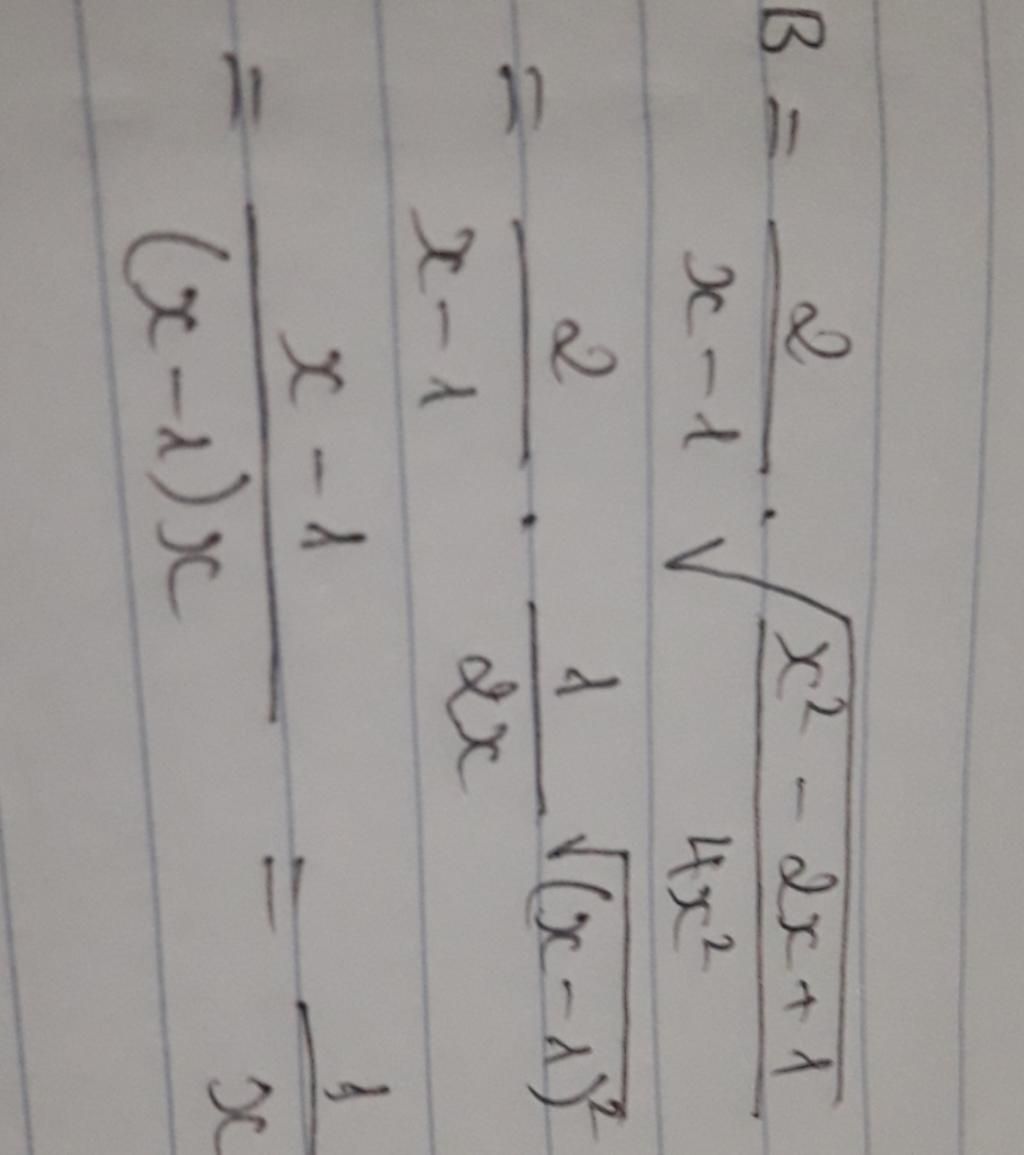 B = \frac{2}{x-1} \cdot \sqrt{\frac{x^2-2x+1}{4x^2}}
= \frac{2}{x-1} \cdot \frac{1}{2x} \sqrt{(x-1)^2}
= \frac{x-1}{(x-1)x} = \frac{1}{x}